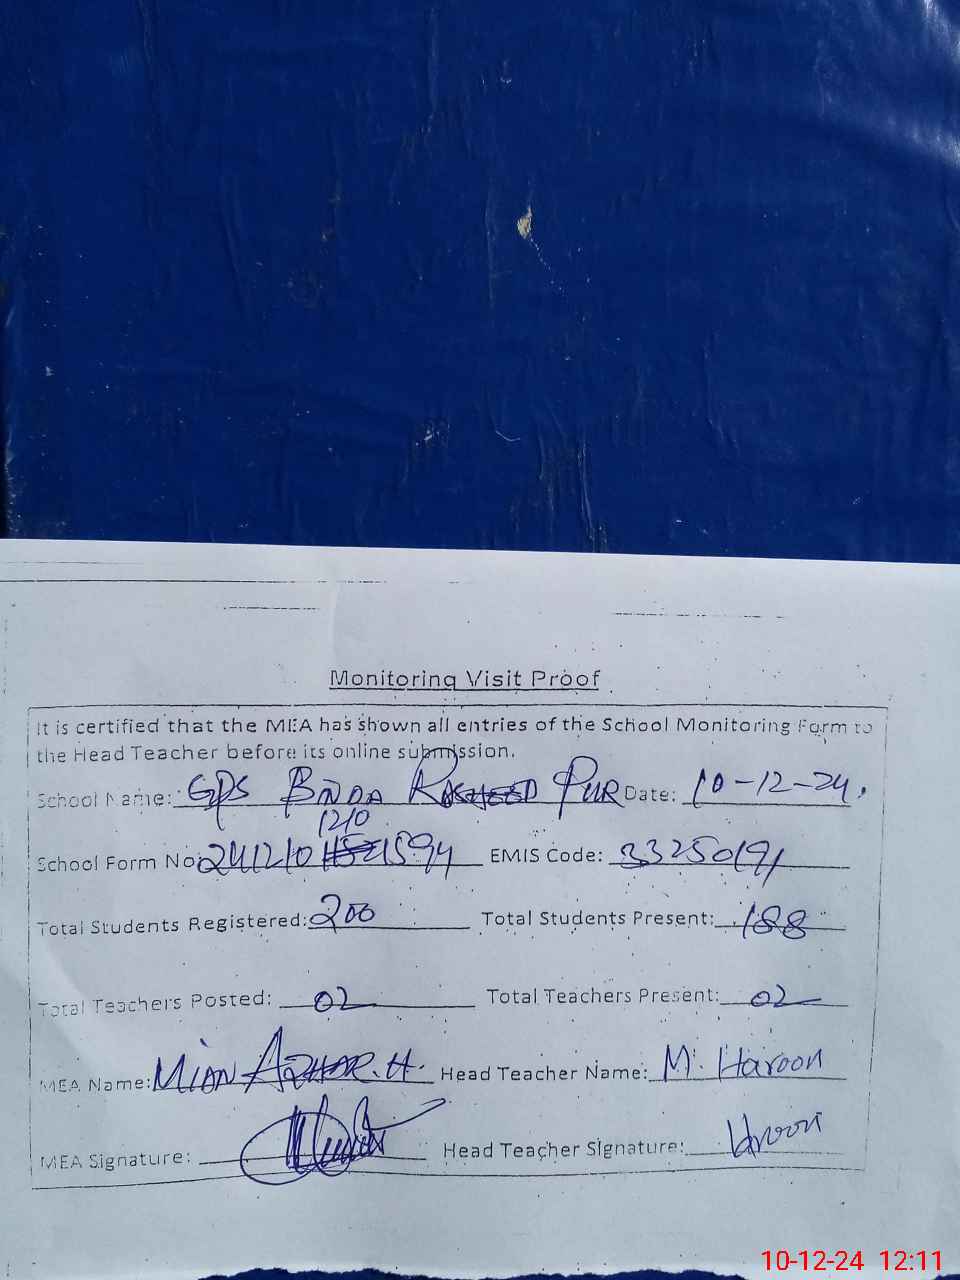 Monitoring Visit Proof
It is certified that the MEA has shown all entries of the School Monitoring Form to
the Head Teacher before its online submission.
School Name: GPS Binda Rasheed Pur Date: 10-12-24.
1210
School Form No: 241210 1594 EMIS Code: 33250191
Total Students Registered: 200 Total Students Present: 188
Total Teachers Posted: 02 Total Teachers Present: 02
MEA Name: MIAN AZHAR.H. Head Teacher Name: M. Haroon
MEA Signature: Head Teacher Signature: Haroon
10-12-24 12:11